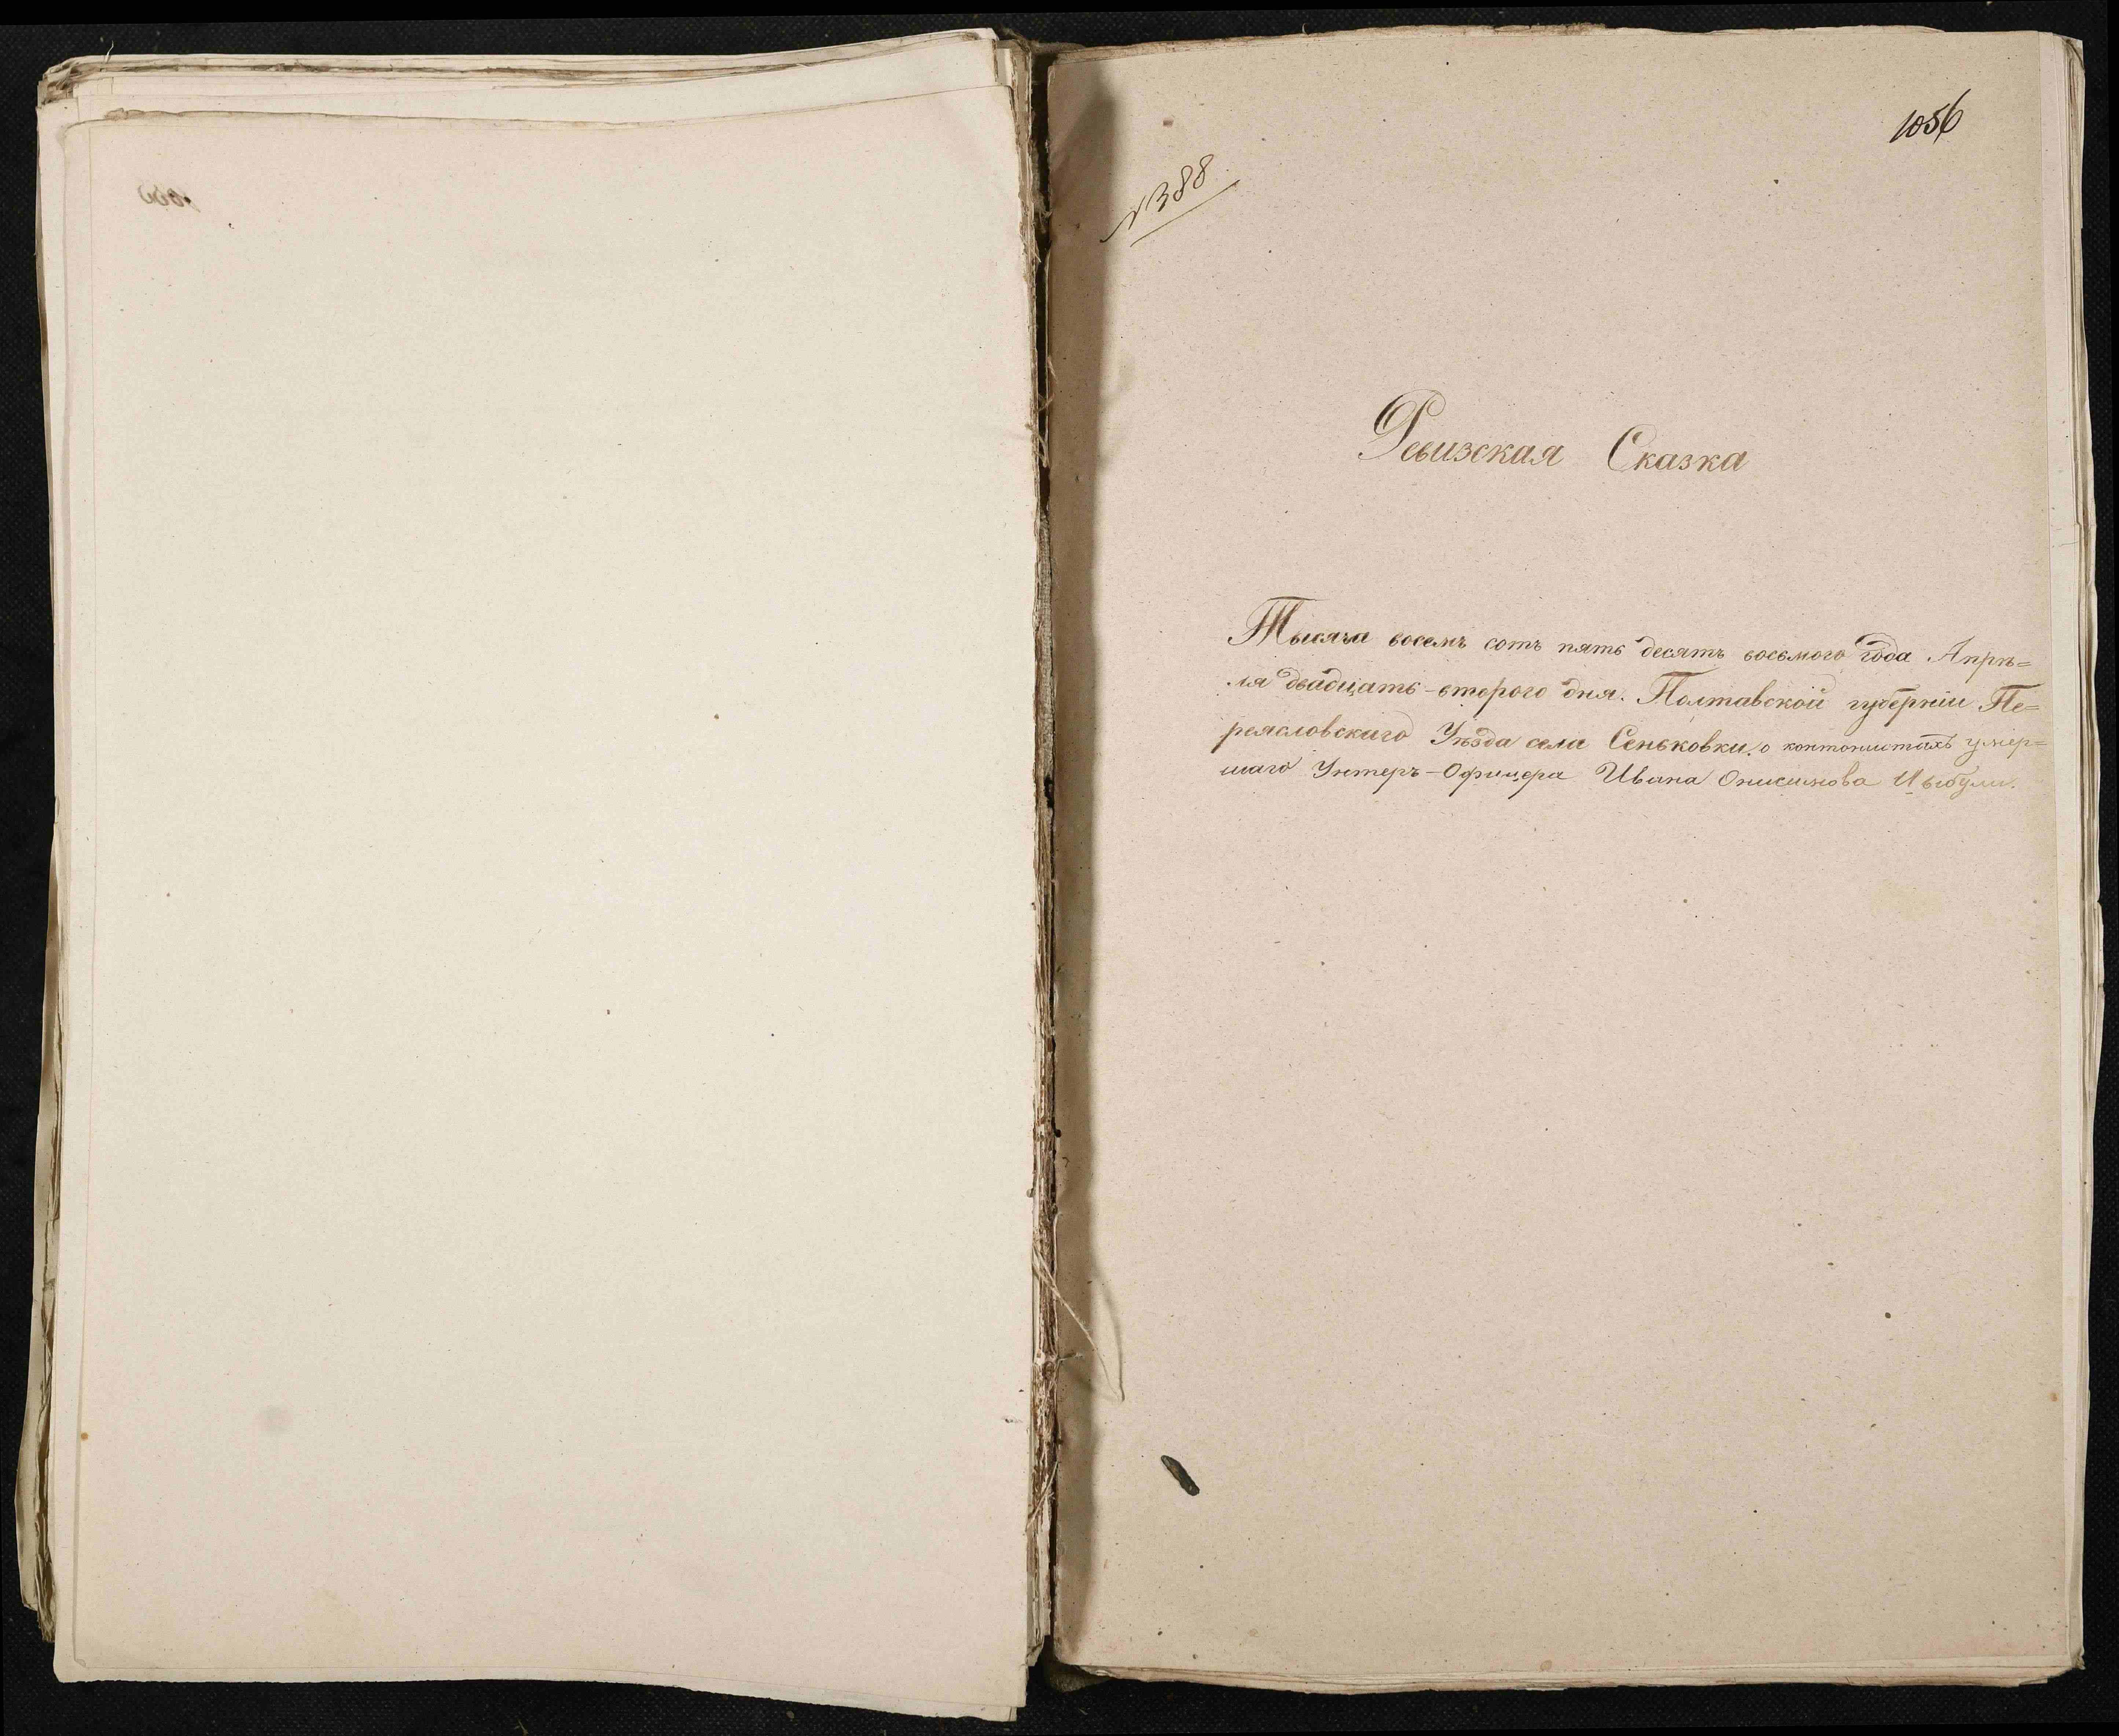 1056
№ 388
Ревизская Сказка
Тысяча восемь сотъ пять десятъ восьмого года Апрѣ=
ля двадцать-второго дня. Полтавской губерніи Пе=
реясловскаго Уѣзда села Сеньковки, о контонистахъ умер=
шаго Унтеръ-Офицера Ивана Онисимова Цыбули.